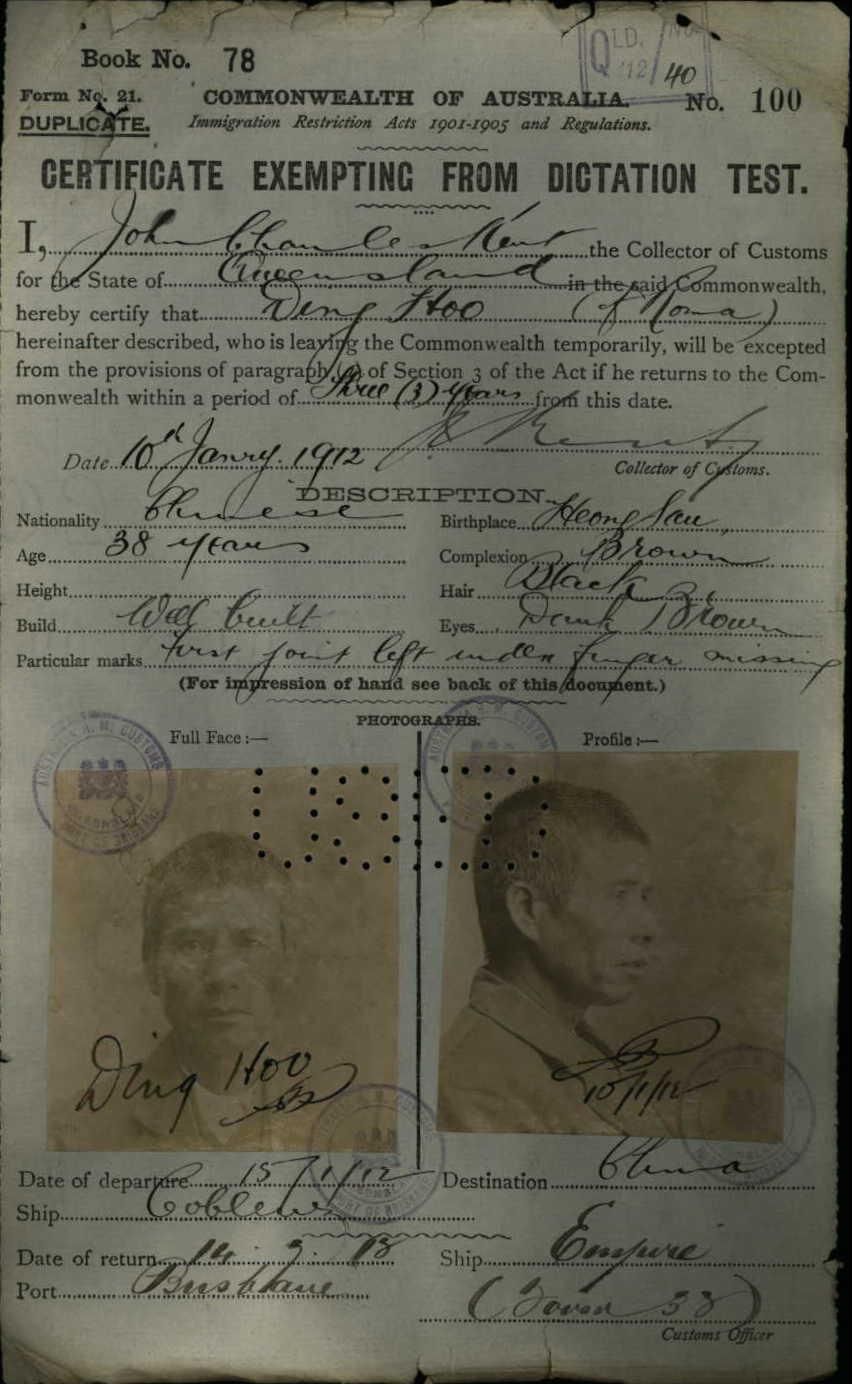 QLD. No
'12/40
Book No. 78
Form No. 21. COMMONWEALTH OF AUSTRALIA. No. 100
DUPLICATE. Immigration Restriction Acts 1901-1905 and Regulations.
CERTIFICATE EXEMPTING FROM DICTATION TEST.
I, John Charles Kent the Collector of Customs
for the State of Queensland in the said Commonwealth,
hereby certify that Ding Hoo (of Roma)
hereinafter described, who is leaving the Commonwealth temporarily, will be excepted
from the provisions of paragraph (a) of Section 3 of the Act if he returns to the Com-
monwealth within a period of Three (3) years from this date.
Date 10th Janry. 1912 Kent
Collector of Customs.
DESCRIPTION.
Nationality Chinese Birthplace Heong San
Age 38 years Complexion Brown
Height Hair Black
Build Well built Eyes Dark Brown
Particular marks First joint left index finger missing
(For impression of hand see back of this document.)
PHOTOGRAPHS.
Full Face:— Profile:—
Ding Hoo
10/1/12
Date of departure 15/1/12 Destination China
Ship Coblenz
Date of return 14. 2. 13 Ship Empire
Port Brisbane
Customs Officer